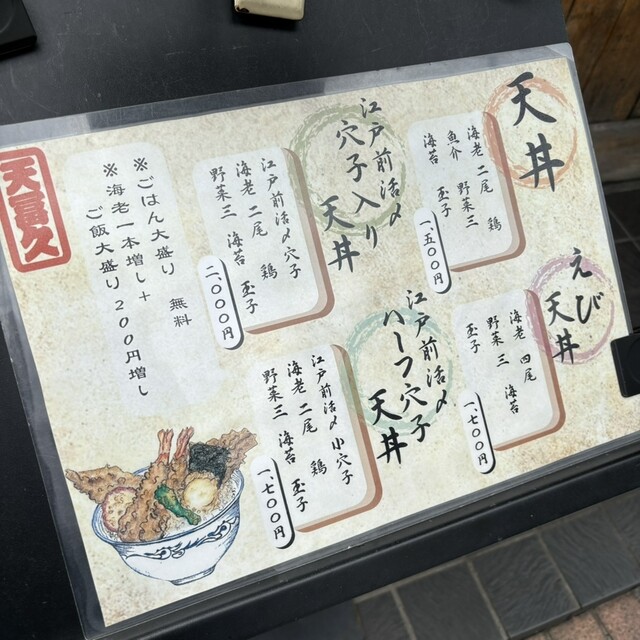 天丼
海老 二尾 鶏
魚介 野菜三
海苔 玉子
一、五〇〇円
えび
天丼
海老 四尾
野菜三 海苔
玉子
一、七〇〇円
江戸前活〆
穴子入り
天丼
江戸前活〆穴子
海老 二尾 鶏
野菜三 海苔 玉子
二、〇〇〇円
江戸前活〆
ハーフ穴子
天丼
江戸前活〆 小穴子
海老 二尾 鶏
野菜三 海苔 玉子
一、七〇〇円
※ごはん大盛り 無料
※海老一本増し+
ご飯大盛り200円増し
天冨久